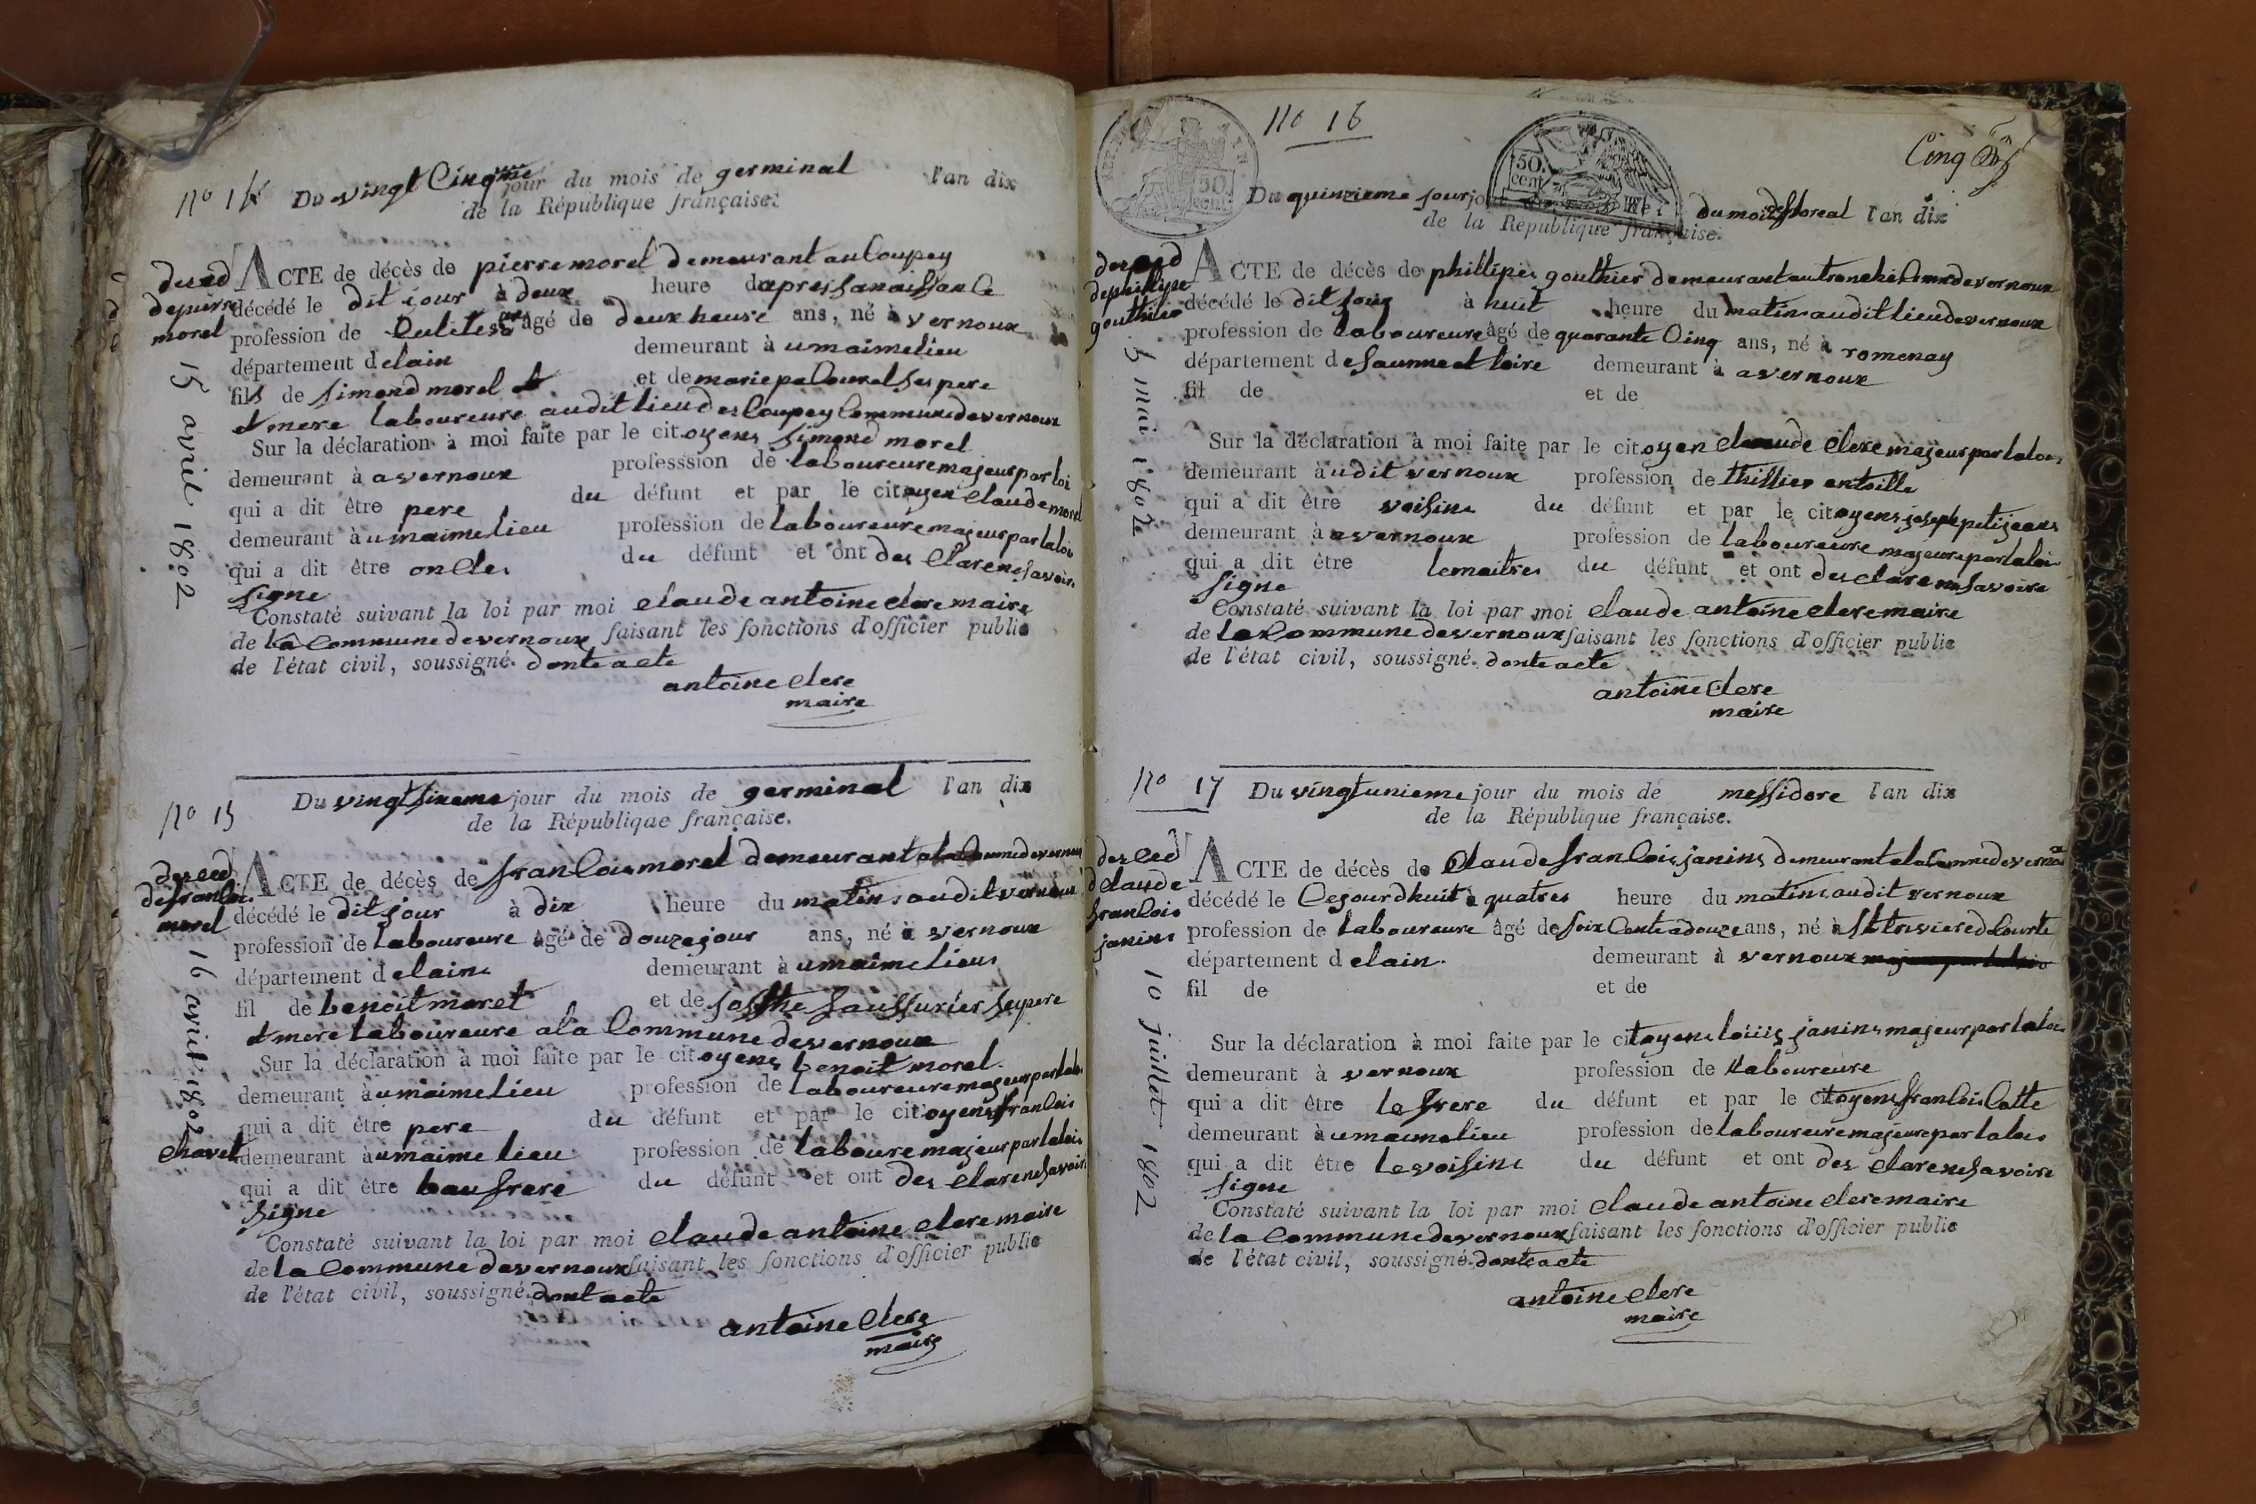 no 14 Du vingt Cinqme jour du mois de germinal l'an dix
de la République française.
desed
de pierre
morel
15 avril 1802
ACTE de décès de pierre morel demeurant au Coupey
décédé le dit jour à deux heure dapres sa naissance
profession de âgé de deux heure ans, né à vernoux
département delain demeurant à umaime lieu
fils de simond morel et et de marie pacourel ses pere
et mere laboureure audit lieu des Coupey Commune de vernoux
Sur la déclaration à moi faite par le citoyens simond morel
demeurant à a vernoux professsion de laboureure majeur par loi
qui a dit être pere du défunt et par le citoyen Claude morel
demeurant à umaime lieu profession de laboureure majeur par la loi
qui a dit être oncle du défunt et ont des clare ne savoir
signe
Constaté suivant la loi par moi claude antoine clere maire
de la Commune de vernoux faisant les fonctions d'officier public
de l'état civil, soussigné. dont acte
antoine clere
maire
no 15 Du vingt sixeme jour du mois de germinal l'an dix
de la République française.
desced
de francoi
morel
16 avril 1802
ACTE de décès de francois morel demeurant a la Comune de vernoux
décédé le dit jour à dix heure du matin audit vernoux
profession de laboureure âgé de douze jour ans, né à vernoux
département delain demeurant à umaime lieu
fil de benoit moret et de Saussurier se pere
et mere laboureure a la Commune de vernoux
Sur la déclaration à moi faite par le citoyens benoit morel
demeurant à umaime lieu profession de laboureure majeur par la loi
qui a dit être pere du défunt et par le citoyens francois
chavet demeurant à umaime lieu profession de laboure majeur par la loi
qui a dit être bau frere du défunt et ont des clare ne savoir
signe
Constaté suivant la loi par moi claude antoine clere maire
de la Commune de vernoux faisant les fonctions d'officier public
de l'état civil, soussigné. dont acte
antoine clere
maire
no 16
50 cent
50 cent
Cinq
Du quinzieme jour du mois de floreal l'an dix
de la République française.
desced
de phillipe
gouthier
5 mai 1802
ACTE de décès de phillipes gouthier demeurant au tranche Comune de vernoux
décédé le dit jour à huit heure du matin audit lieu de vernoux
profession de laboureure âgé de quarante Cinq ans, né à romenay
département de saunne et loire demeurant à a vernoux
fil de et de
Sur la déclaration à moi faite par le citoyen claude clere majeur par la loi
demeurant à udit vernoux profession de thillier en toille
qui a dit être voisine du défunt et par le citoyens joseph petijeans
demeurant à a vernoux profession de laboureure majeure par la loi
qui a dit être le maitre du défunt et ont des clare ne savoire
signe
Constaté suivant la loi par moi claude antoine clere maire
de la Commune de vernoux faisant les fonctions d'officier public
de l'état civil, soussigné. dont acte
antoine clere
maire
no 17 Du vingt unieme jour du mois de messidore l'an dix
de la République française.
desced
d claude
francois
janins
10 juillet 1802
ACTE de décès de Claude francois janins demeurant a la Comune de vernoux
décédé le Cejourdhuit à quatres heure du matins audit vernoux
profession de laboureure âgé de soix ans, né à St triviere d Courte
département delain demeurant à vernoux
fil de et de
Sur la déclaration à moi faite par le citoyens louis janins majeur par la loi
demeurant à vernoux profession de laboureure
qui a dit être le frere du défunt et par le citoyens francois Catte
demeurant à umaime lieu profession de laboureure majeure par la loi
qui a dit être le voisine du défunt et ont des clare ne savoire
signe
Constaté suivant la loi par moi claude antoine clere maire
de la Commune de vernoux faisant les fonctions d'officier public
de l'état civil, soussigné. dont acte
antoine clere
maire